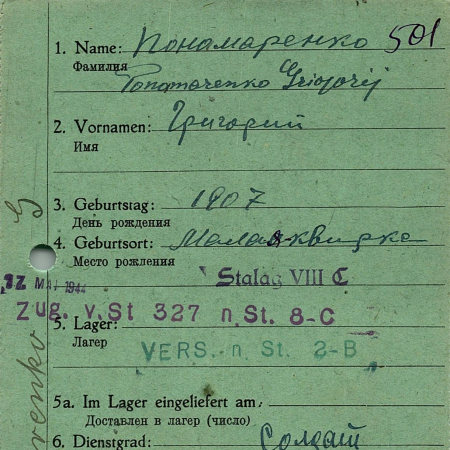 1. Name: Пономаренко 501
Фамилия
Ponomarenko Griojorij
2. Vornamen: Григорий
Имя
3. Geburtstag: 1907
День рождения
4. Geburtsort: Малая-квирка
Место рождения
12 MAI 1944 Stalag VIII C
Zug. v. St 327 n. St. 8-C
5. Lager:
Лагер
VERS. n St. 2-B
5a. Im Lager eingeliefert am.
Доставлен в лагер (число)
6. Dienstgrad: Солдат
renko G